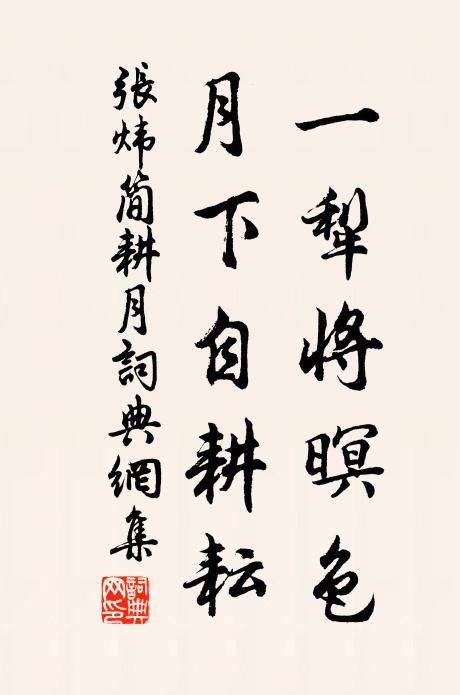 一犁將暝色
月下自耕耘
張煒簡耕月詞典網集
詞典网印